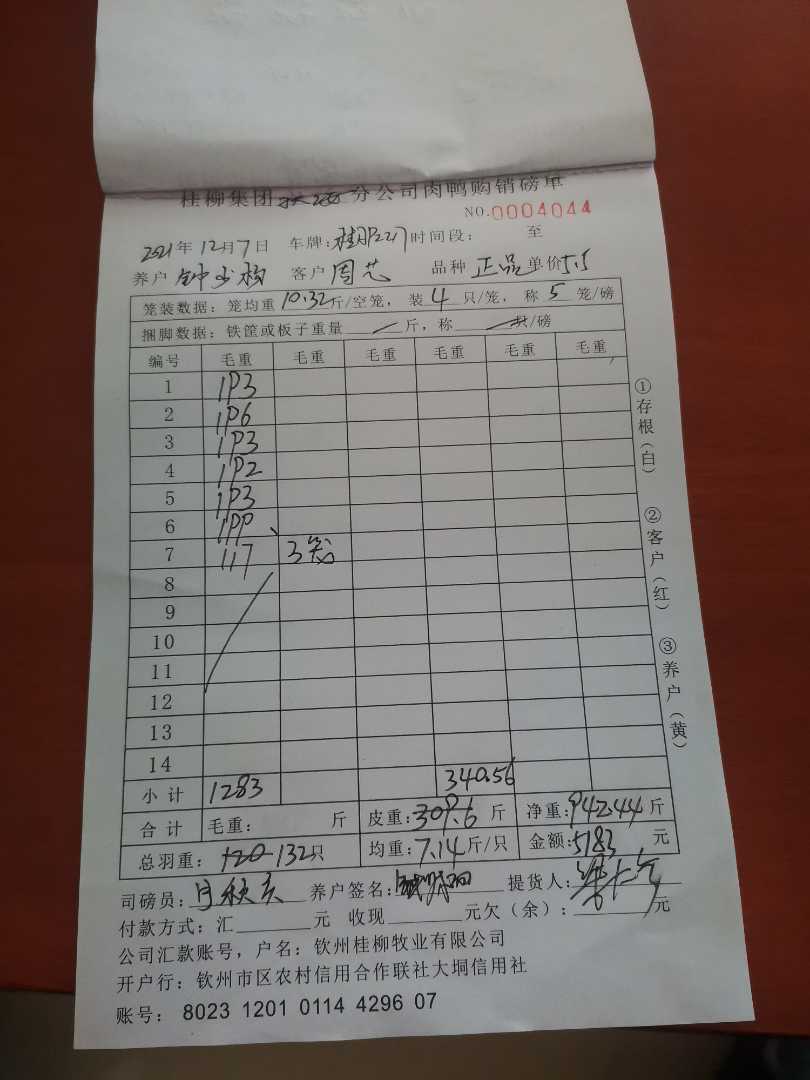 桂柳集团 分公司肉鸭购销磅单
NO.0004044
2021年12月7日 车牌: 时间段: 至
养户 钟 客户 周芯 品种 正品 单价 5.5
笼装数据: 笼均重 10.32 斤/空笼, 装 4 只/笼, 称 5 笼/磅
捆脚数据: 铁筐或板子重量 斤, 称 只/磅
编号 毛重 毛重 毛重 毛重 毛重 毛重
1 193
2 196
3 193
4 192
5 193
6 199
7 117 3笼
8
9
10
11
12
13
14
小计 1283 340.56
合计 毛重: 斤 皮重: 309.6 斤 净重: 942.44 斤
总羽重: 120 132只 均重: 7.14 斤/只 金额: 5183 元
司磅员: 养户签名: 提货人:
付款方式: 汇 元 收现 元欠(余): 元
公司汇款账号, 户名: 钦州桂柳牧业有限公司
开户行: 钦州市区农村信用合作联社大垌信用社
账号: 8023 1201 0114 4296 07
①存根(白)
②客户(红)
③养户(黄)